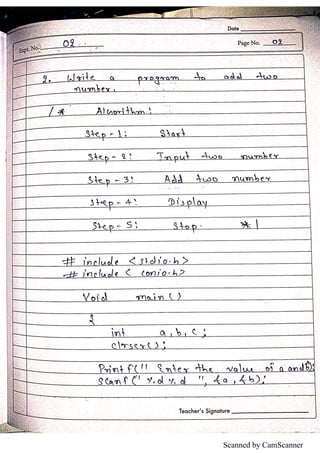 Date
Expt. No. 02 Page No. 02
2. Write a program to add two
number.
/* Algorithm:
Step-1: Start
Step-2: Input two number
Step-3: Add two number
Step-4: Display
Step-5: Stop. */
# include <stdio.h>
# include < conio.h>
Void main ()
{
int a, b, c ;
clrscr();
Printf(" Enter the value of a and b");
Scanf(" %d %d ", &a, &b);
Teacher's Signature
Scanned by CamScanner